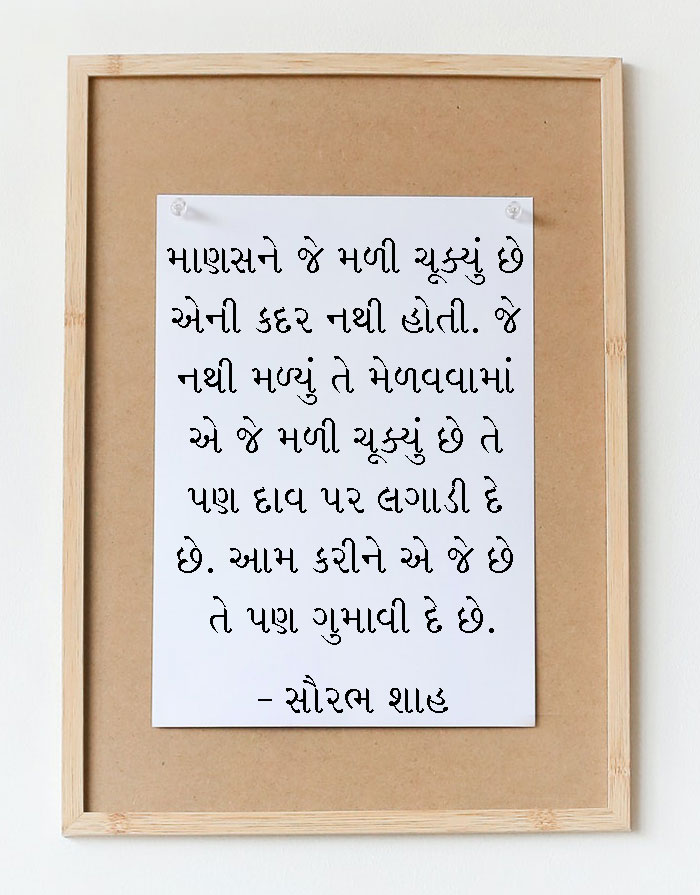 માણસને જે મળી ચૂક્યું છે
એની કદર નથી હોતી. જે
નથી મળ્યું તે મેળવવામાં
એ જે મળી ચૂક્યું છે તે
પણ દાવ પર લગાડી દે
છે. આમ કરીને એ જે છે
તે પણ ગુમાવી દે છે.
- સૌરભ શાહ